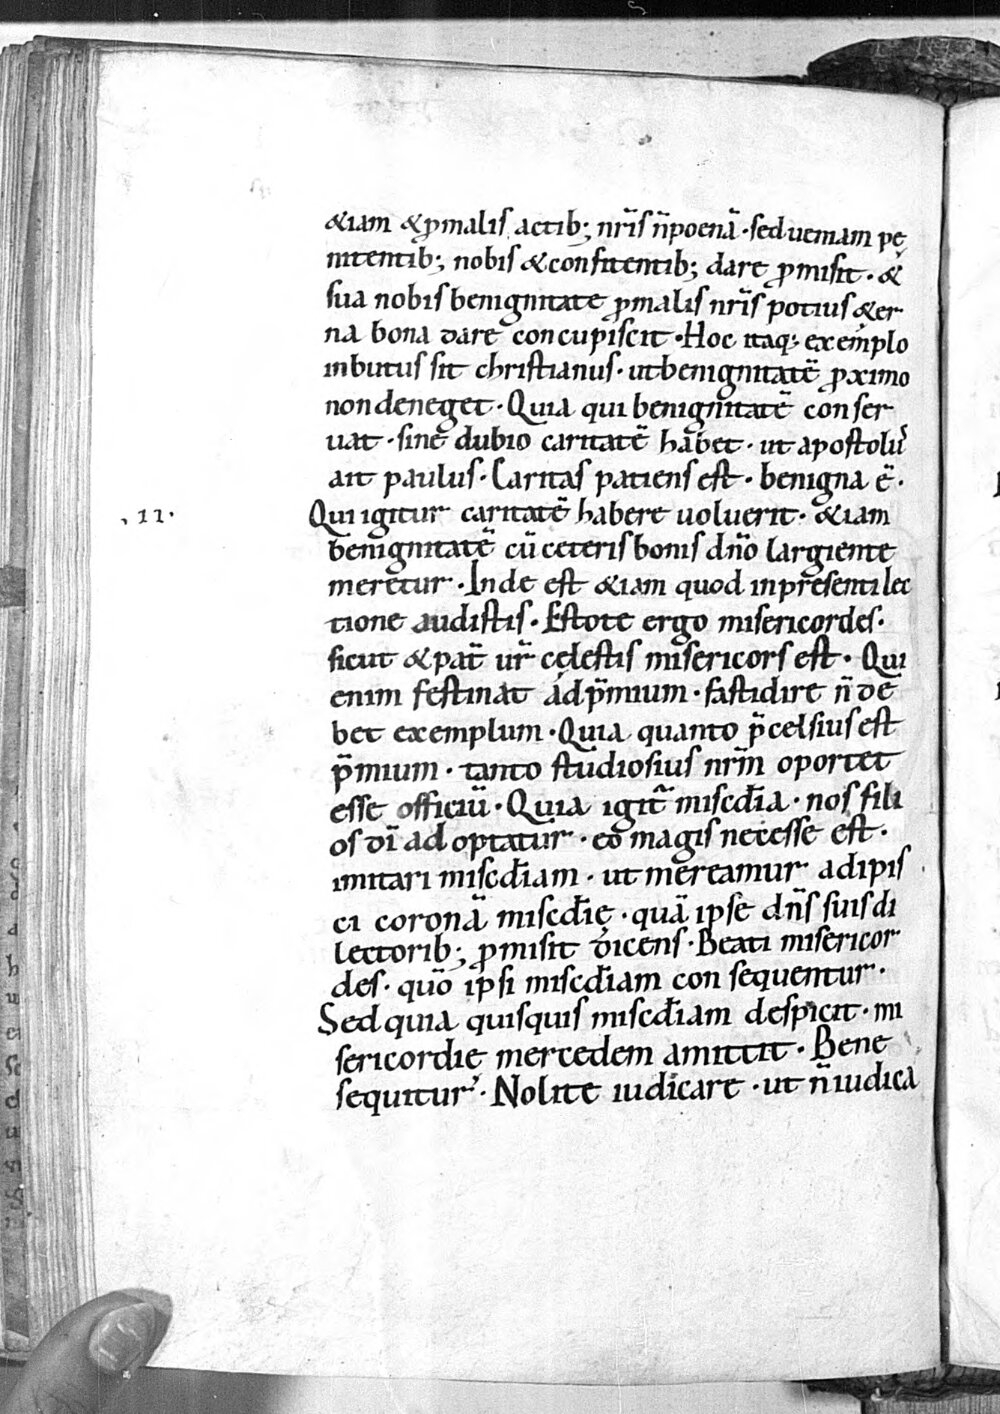 &iam & ꝓmalis actib; nr̃is ñ poenã · sed ueniam pę
nitentib; nobis & confitentib; dare ꝓmisit · &
sua nobis benignitate ꝓmalis nr̃is potius &er
na bona dare concupiscit · Hoc itaq; exemplo
inbutus sit christianus · ut benignitatẽ ꝓximo
non deneget · Quia qui benignitatẽ conser
uat · sine dubio caritatẽ habet · ut apostolus
ait paulus · Caritas patiens est · benigna ẽ ·
.11.
Qui igitur caritatẽ habere uoluerit · &iam
benignitatẽ cũ ceteris bonis dño largiente
meretur · Inde est &iam quod in presenti lec
tione audistis · Estote ergo misericordes ·
sicut & pat̃ ur̃ cęlestis misericors est · Qui
enim festinat ad p̃mium · fastidire ñ de
bet exemplum · Quia quanto p̃celsius est
p̃mium · tanto studiosius nrm̃ oportet
esse officiũ · Quia igit̃ miscdĩa · nos fili
os dĩ adoptatur · eo magis necesse est ·
imitari miscdĩam · ut mereamur adipis
ci coronã miscdĩę · quã ipse dñs suis di
lectorib; ꝓmisit dicens · Beati misericor
des · quõ ipsi miscdĩam consequentur ·
Sed quia quisquis miscdĩam despicit · mi
sericordie mercedem amittit · Bene
sequitur · Nolite iudicare · ut ñ iudica